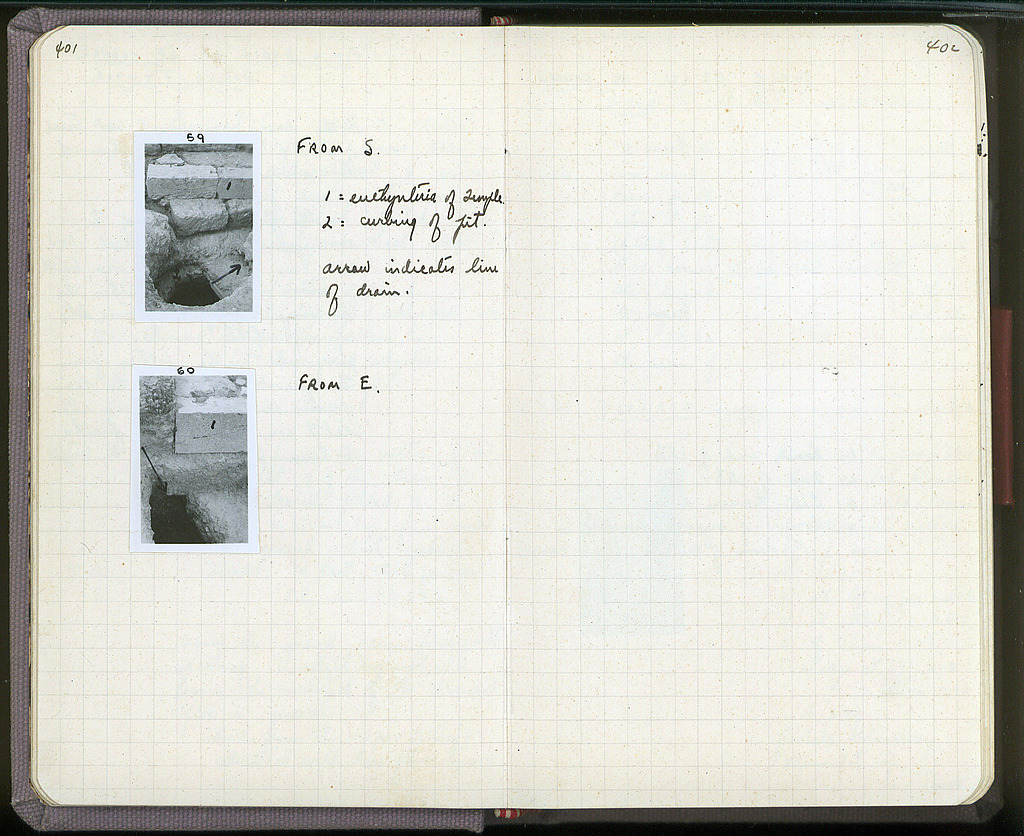 401
402
59
FROM S.
1
1 = euthynteria of Temple.
2 = curving of pit.
arrow indicates line
of drain.
60
FROM E.
1